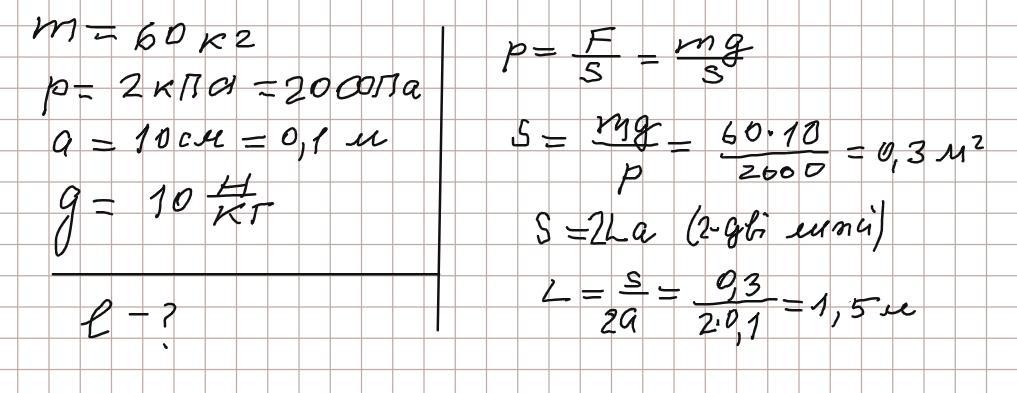 m = 60 кг
p = 2 кПа = 2000 Па
a = 10 см = 0,1 м
g = 10 Н/кг
l - ?
p = F/S = mg/S
S = mg/p = 60·10/2000 = 0,3 м²
S = 2La (2-дві лижі)
L = S/2a = 0,3/2·0,1 = 1,5 м